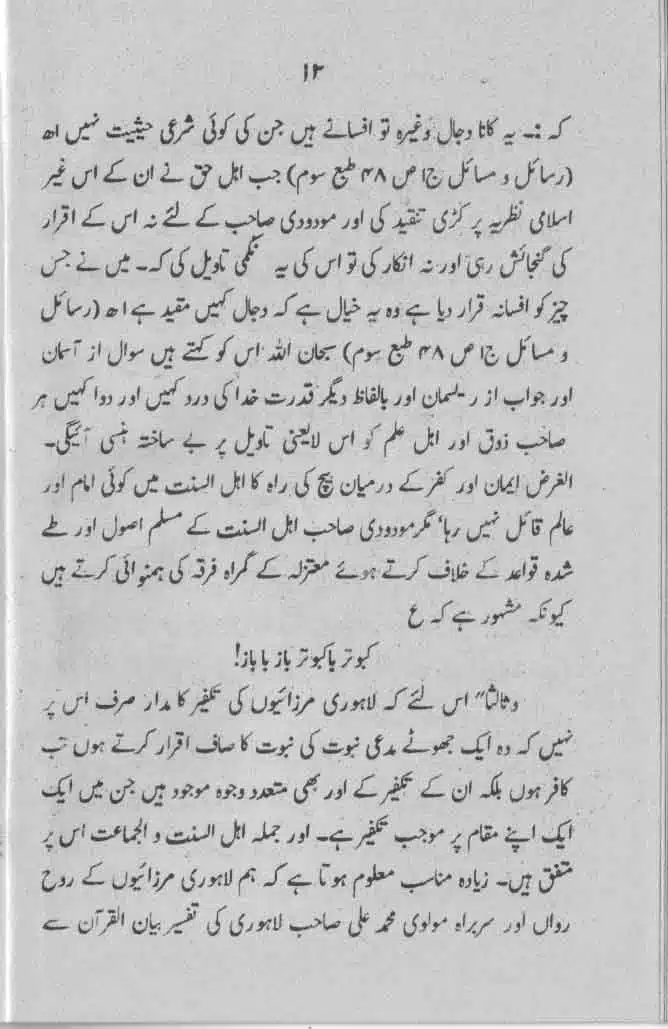 ۱۲
کہ :۔ یہ کانا دجال وغیرہ تو افسانے ہیں جن کی کوئی شرعی حیثیت نہیں اھ
(رسائل و مسائل ج۱ ص ۴۸ طبع سوم) جب اہل حق نے ان کے اس غیر
اسلامی نظریہ پر کڑی تنقید کی اور مودودی صاحب کے لئے نہ اس کے اقرار
کی گنجائش رہی اور نہ انکار کی تو اس کی یہ نکمی تاویل کی کہ۔ میں نے جس
چیز کو افسانہ قرار دیا ہے وہ یہ خیال ہے کہ دجال کہیں مقید ہے اھ (رسائل
و مسائل ج۱ ص ۴۸ طبع سوم) سبحان اللہ اس کو کہتے ہیں سوال از آسمان
اور جواب از ریسمان اور بالفاظ دیگر قدرت خدا کی درد کہیں اور دوا کہیں ہر
صاحب ذوق اور اہل علم کو اس لایعنی تاویل پر بے ساختہ ہنسی آئیگی۔
الغرض ایمان اور کفر کے درمیان بیچ کی راہ کا اہل السنت میں کوئی امام اور
عالم قائل نہیں رہا، مگر مودودی صاحب اہل السنت کے مسلم اصول اور طے
شدہ قواعد کے خلاف کرتے ہوئے معتزلہ کے گمراہ فرقہ کی ہمنوائی کرتے ہیں
کیونکہ مشہور ہے کہ ع
کبوتر باکبوتر باز باباز!
وثالثا" اس لئے کہ لاہوری مرزائیوں کی تکفیر کا مدار صرف اس پر
نہیں کہ وہ ایک جھوٹے مدعی نبوت کی نبوت کا صاف اقرار کرتے ہوں تب
کافر ہوں بلکہ ان کے تکفیر کے اور بھی متعدد وجوہ موجود ہیں جن میں ایک
ایک اپنے مقام پر موجب تکفیر ہے۔ اور جملہ اہل السنت و الجماعت اس پر
متفق ہیں۔ زیادہ مناسب معلوم ہوتا ہے کہ ہم لاہوری مرزائیوں کے روح
رواں اور سربراہ مولوی محمد علی صاحب لاہوری کی تفسیر بیان القرآن سے